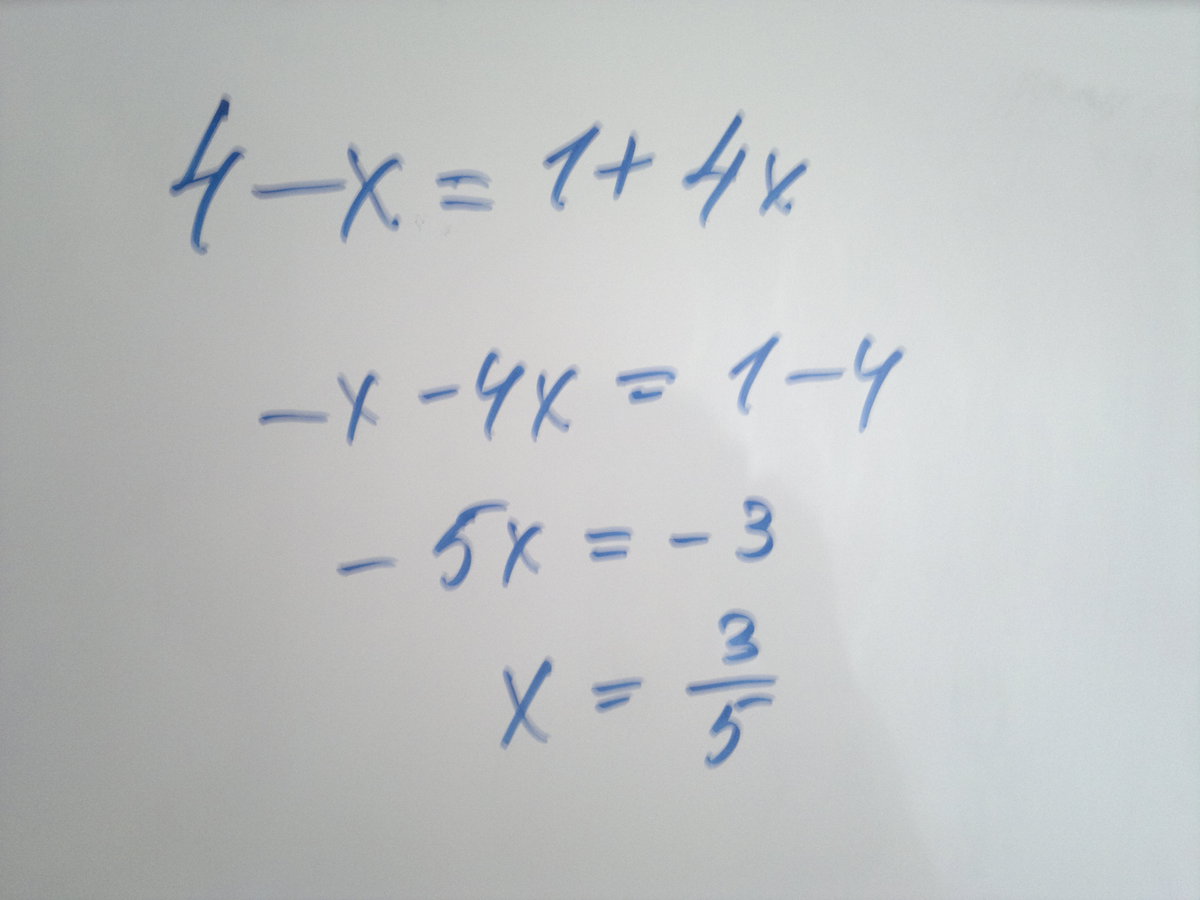 4 - x = 1 + 4x
-x - 4x = 1 - 4
- 5x = - 3
x = 3/5